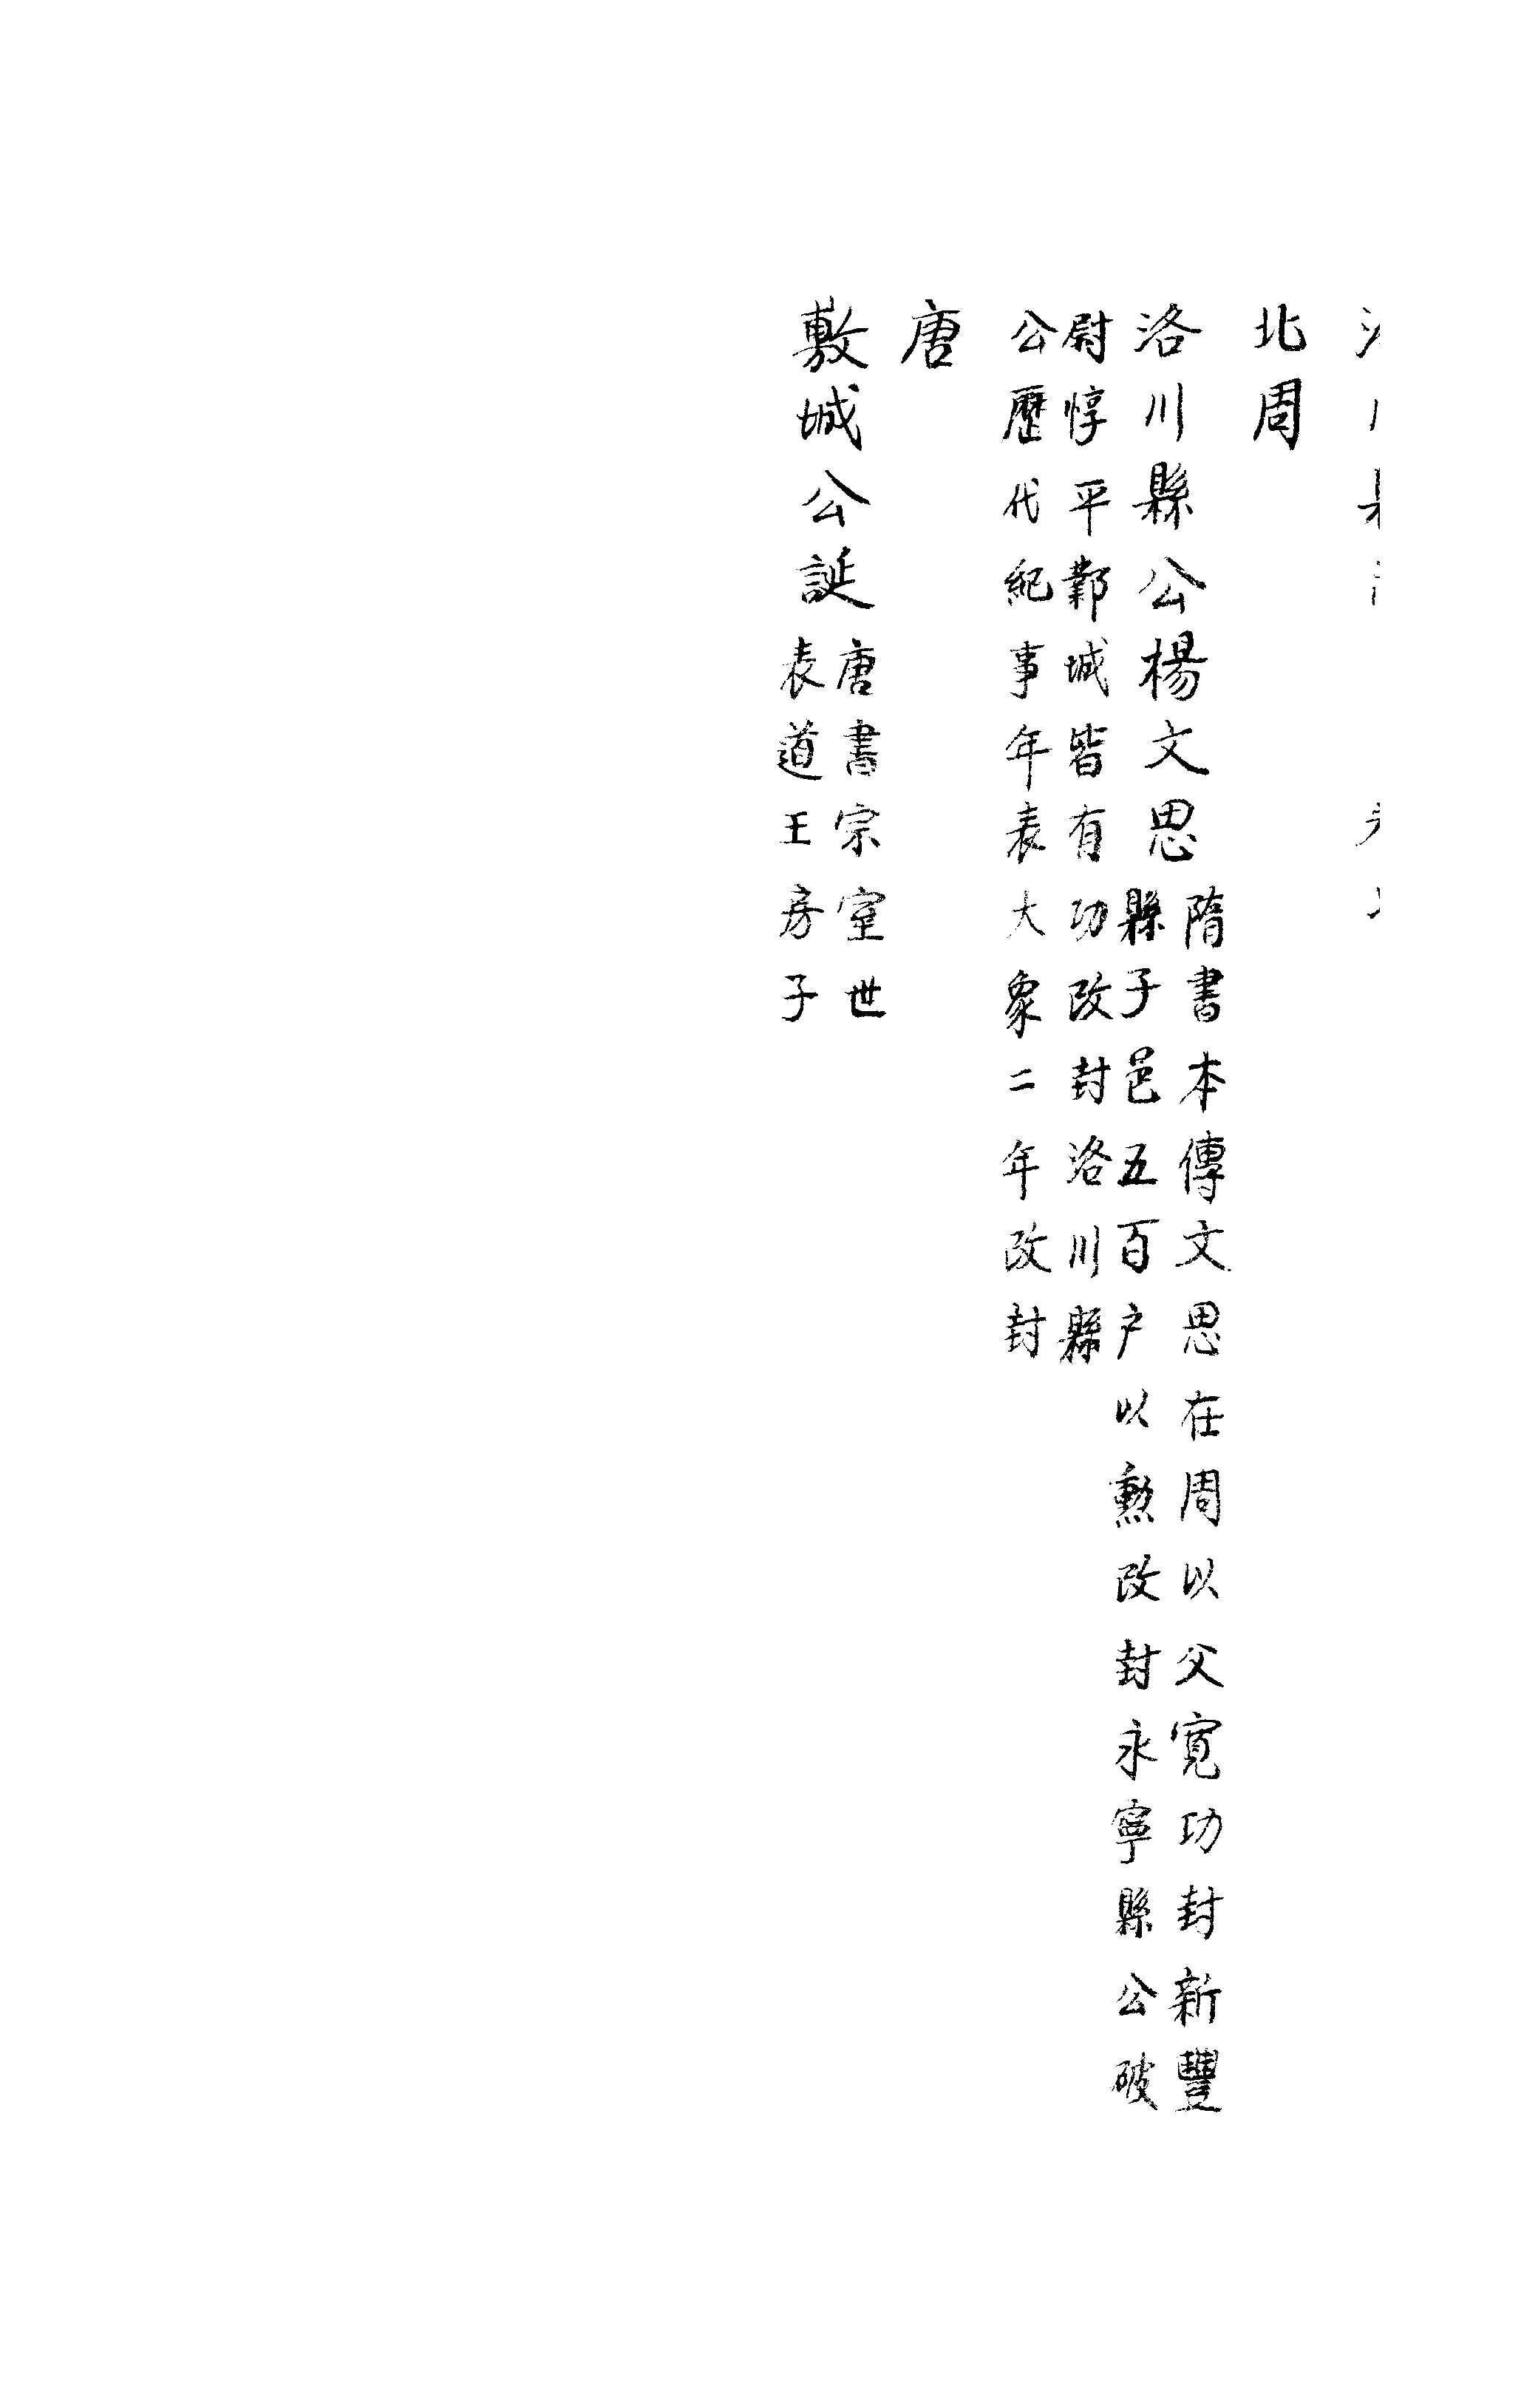 北周
洛川縣公楊文思
隋書本傳文思在周以父寬功封新豐
縣子邑五百户以勲改封永寧縣公破
尉惇平鄴城皆有功改封洛川縣
公歷代紀事年表大象二年改封
唐
敷城公誕
唐書宗室世
表道王房子